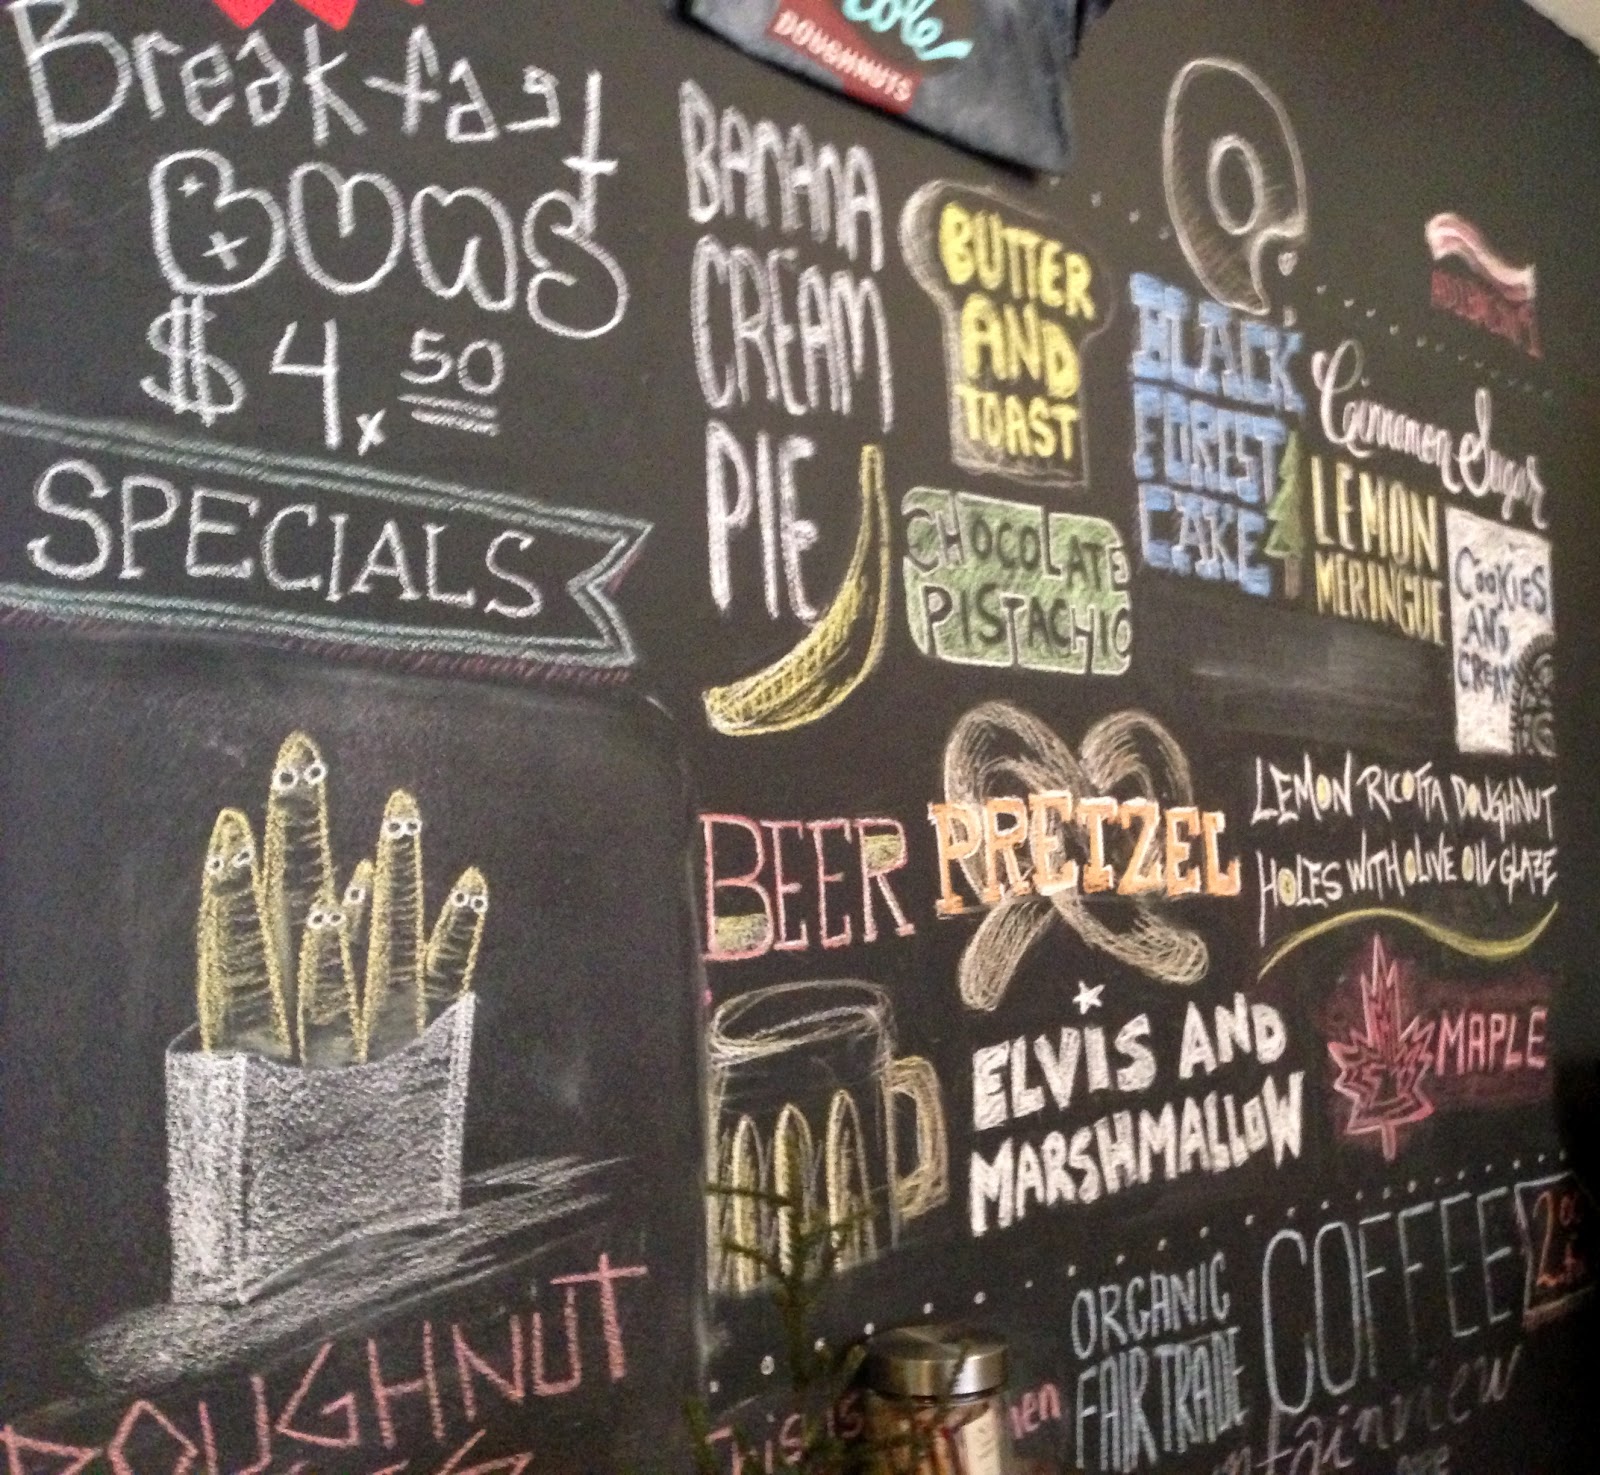 Breakfast
BOWLS
$4.50
SPECIALS
DOUGHNUT
DOUGHNUTS
BANANA
CREAM
PIE
BUTTER
AND
TOAST
CHOCOLATE
PISTACHIO
BLACK
FOREST
CAKE
Cinnamon Sugar
LEMON
MERINGUE
COOKIES
AND
CREAM
BEER
PRETZEL
LEMON RICOTTA DOUGHNUT
HOLES WITH OLIVE OIL GLAZE
ELVIS AND
MARSHMALLOW
MAPLE
ORGANIC
FAIR TRADE
COFFEE
This is